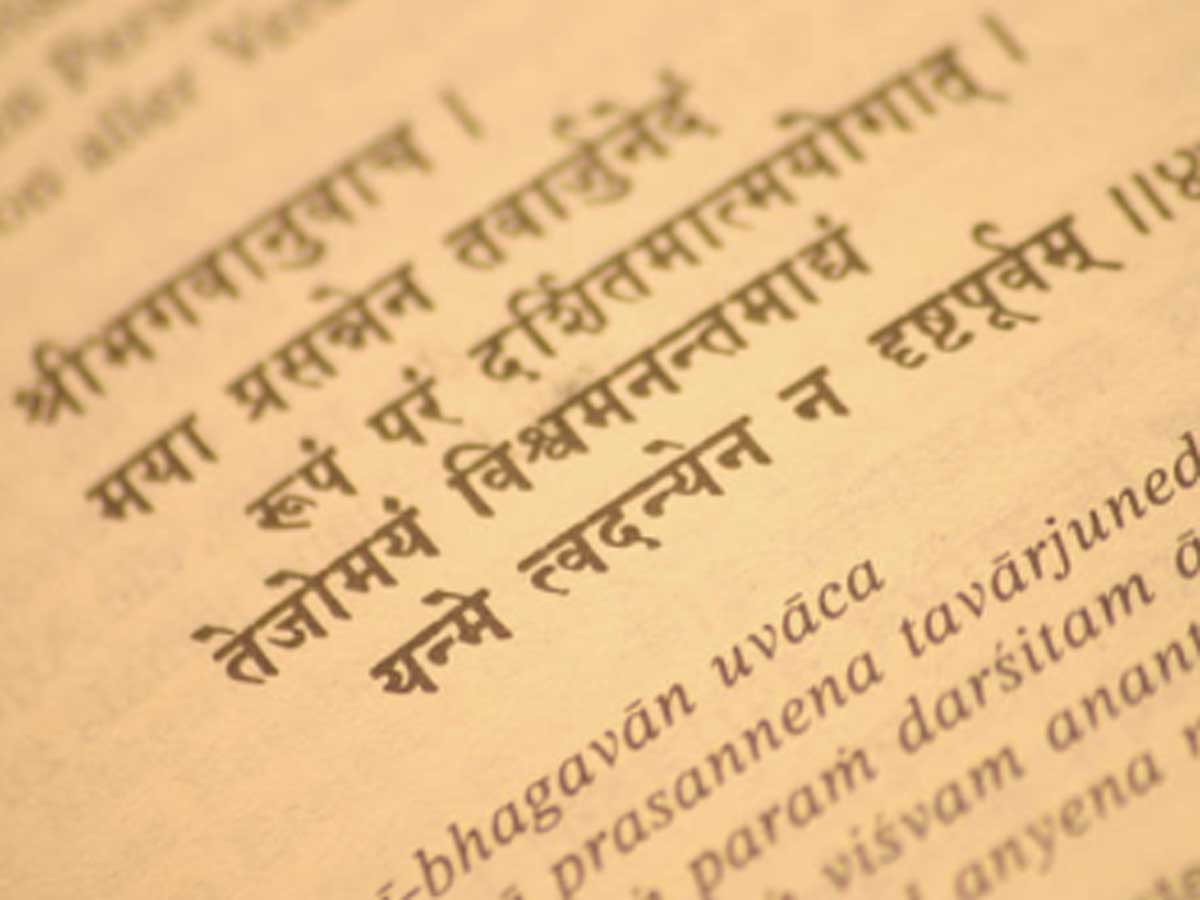 on aller
श्रीभगवानुवाच ।
मया प्रसन्नेन तवार्जुनेदं
रूपं परं दर्शितमात्मयोगात् ।
तेजोमयं विश्वमनन्तमाद्यं
यन्मे त्वदन्येन न दृष्टपूर्वम् ॥
-bhagavān uvāca
prasannena tavārjuned
paraṁ darśitam ā
viśvam anant
anyena n